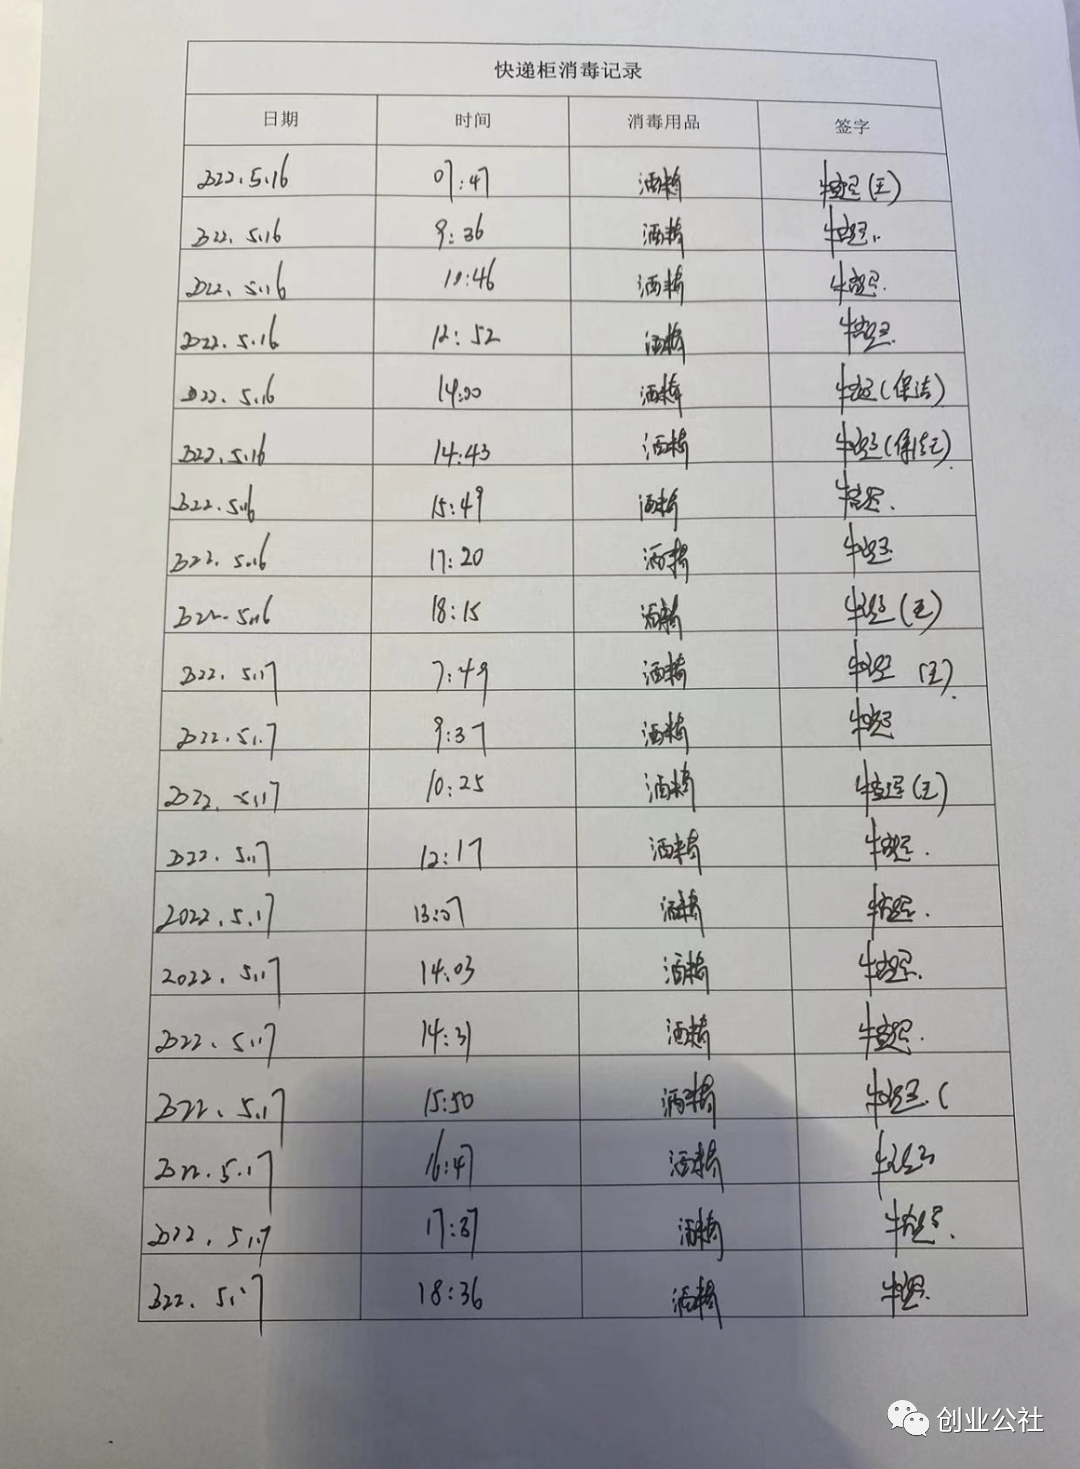 快递柜消毒记录
日期 时间 消毒用品 签字
2022.5.16 07:47 酒精 (王)
2022.5.16 9:36 酒精
2022.5.16 10:46 酒精
2022.5.16 12:52 酒精
2022.5.16 14:00 酒精 (保洁)
2022.5.16 14:43 酒精
2022.5.16 15:49 酒精
2022.5.16 17:20 酒精
2022.5.16 18:15 酒精 (王)
2022.5.17 7:49 酒精 (王)
2022.5.17 9:37 酒精
2022.5.17 10:25 酒精 (王)
2022.5.17 12:17 酒精
2022.5.17 13:07 酒精
2022.5.17 14:03 酒精
2022.5.17 14:31 酒精
2022.5.17 15:50 酒精
2022.5.17 16:47 酒精
2022.5.17 17:37 酒精
2022.5.17 18:36 酒精
创业公社